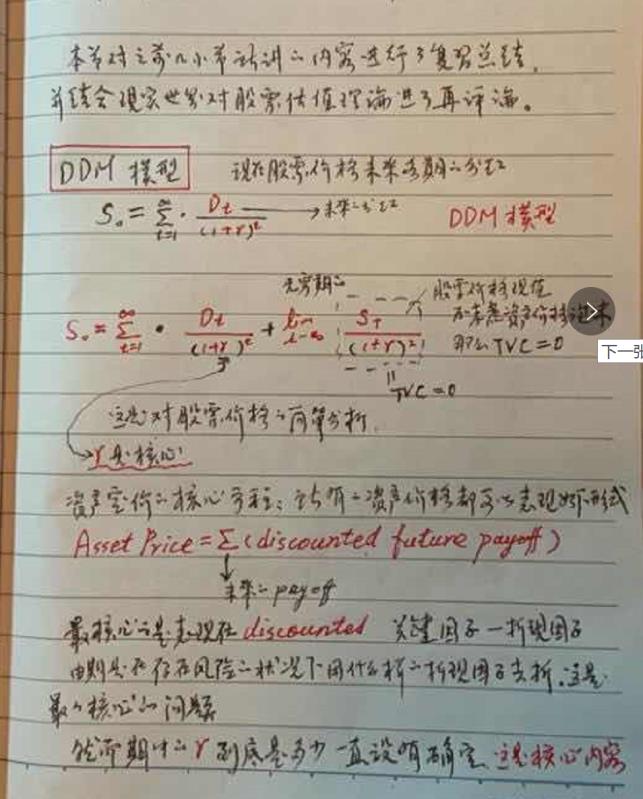 本节对之前几小节所讲的内容进行了复习总结,
并结合现实世界对股票估值理论进了再评论。
DDM 模型 现在股票价格未来多期的分红
S₀ = ∑_{t=1}^{∞} · Dt/(1+r)^t → 未来的分红 DDM 模型
无穷期的 股票价格现值
S₀ = ∑_{t=1}^{∞} · Dt/(1+r)^t + lim ST/(1+r)^t
那么 TVC = 0
下一张
TVC = 0
这是对股票价格的简单分析.
r 是核心
资产定价的核心方程: 所有的资产价格都可以表现如下形式
Asset Price = ∑ (discounted future payoff)
未来的 payoff
最核心的是表现在 discounted 关键因子 — 折现因子
存在风险的状况下用什么样的折现因子去折. 这是
最核心的问题
然而期中的 r 到底是多少 一直没有确定. 这是核心内容